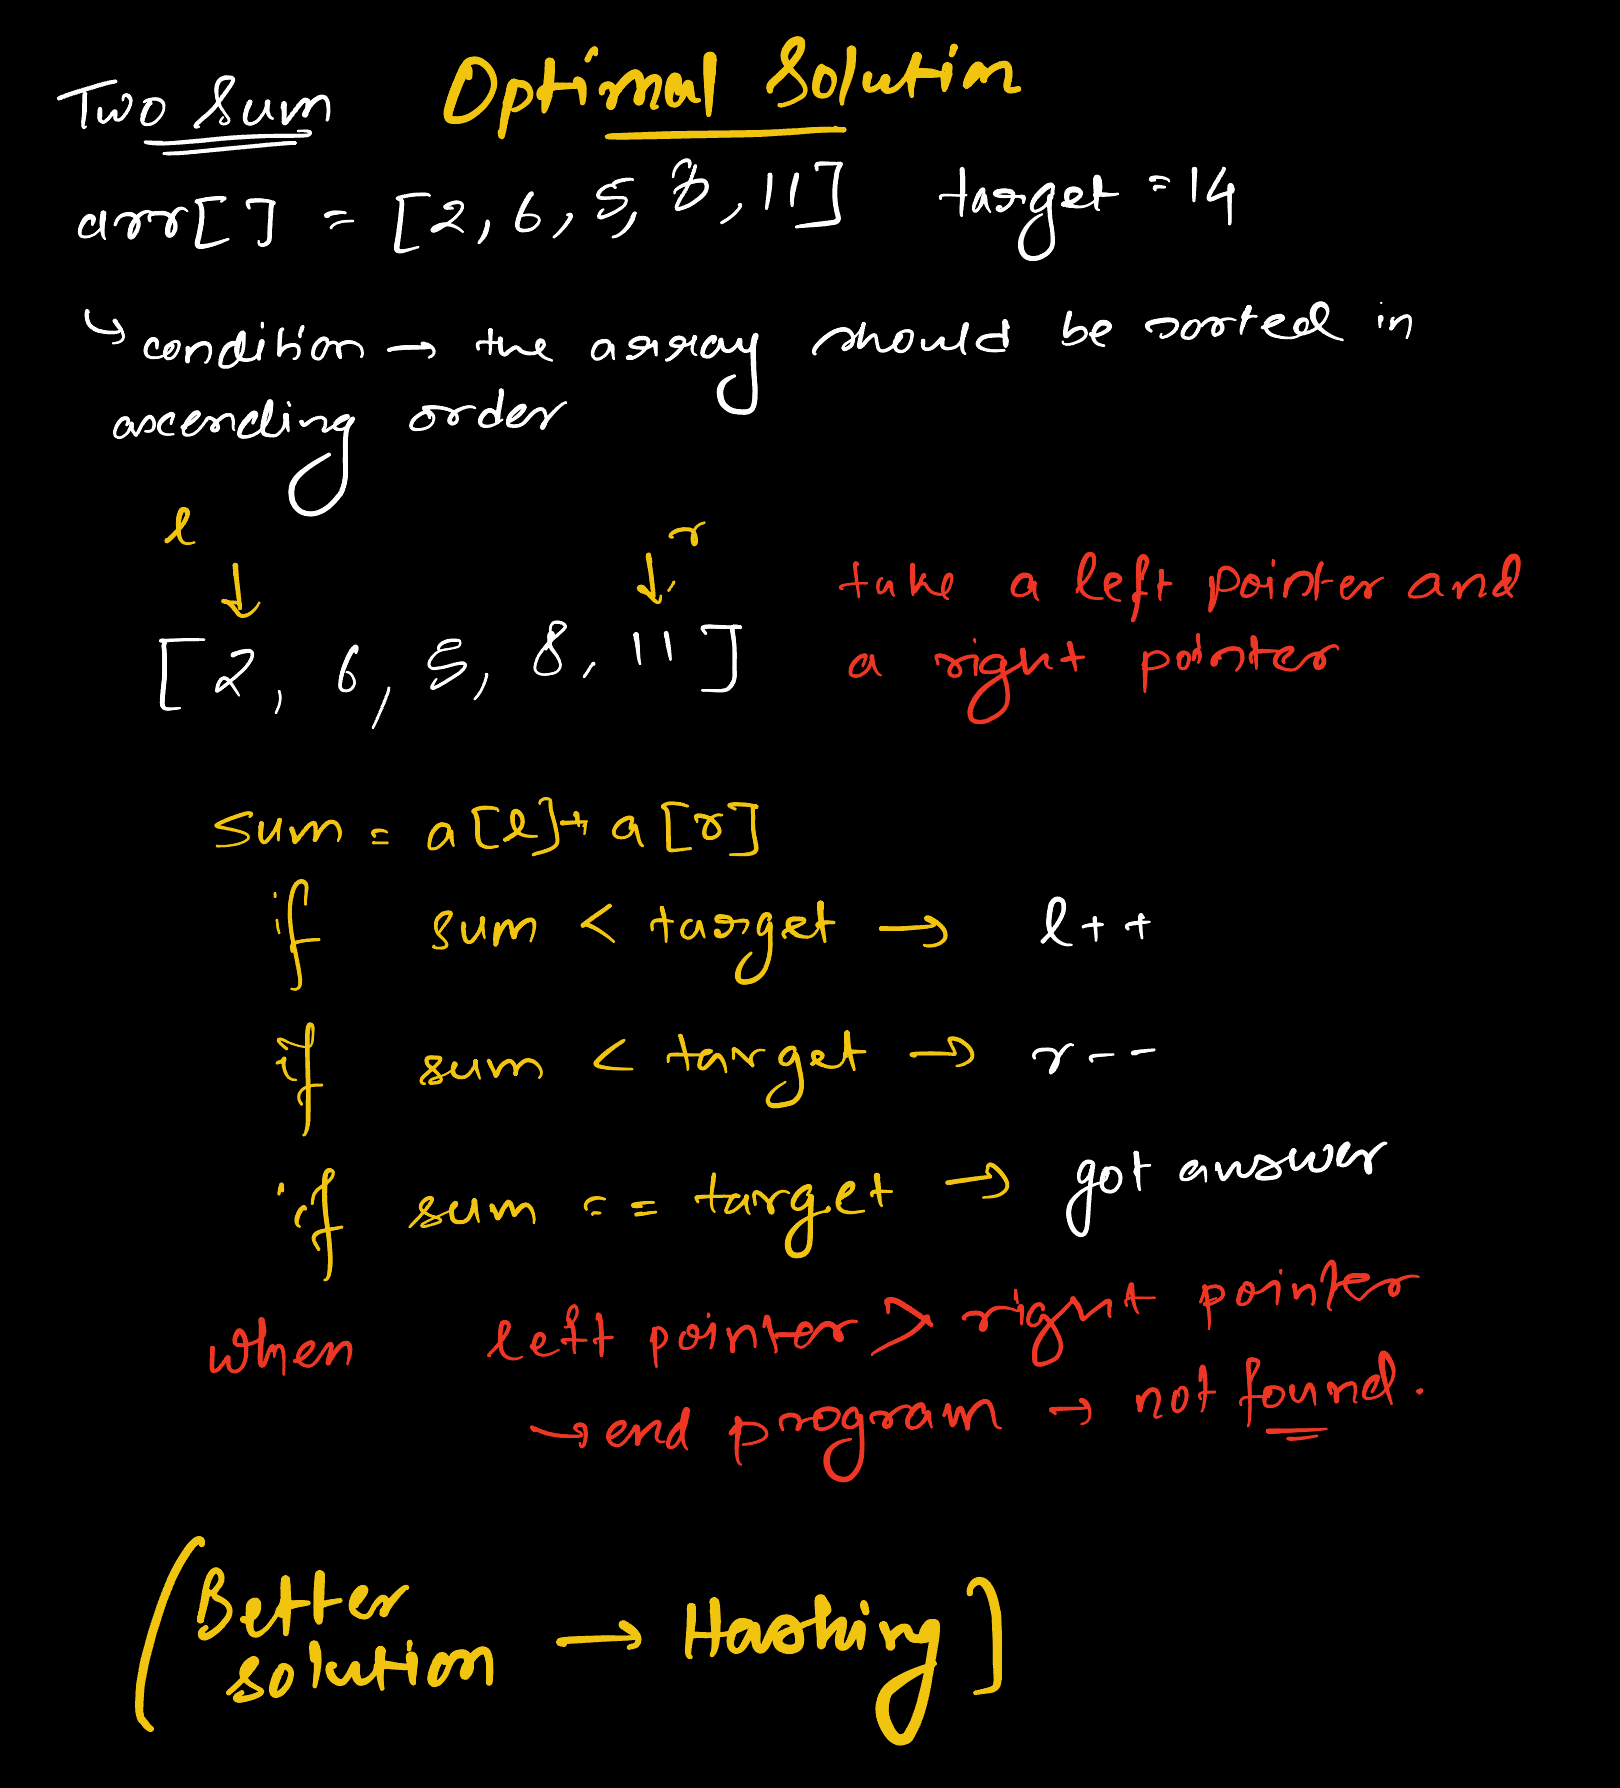 Two Sum Optimal Solution
arr[] = [2, 6, 5, 8, 11] target = 14
↳ condition → the array should be sorted in
ascending order
l r
↓ ↓
[2, 6, 5, 8, 11] take a left pointer and
a right pointer
Sum = a[l] + a[r]
if sum < target → l++
if sum < target → r--
if sum == target → got answer
when left pointer > right pointer
→ end program → not found.
(Better
solution → Hashing]